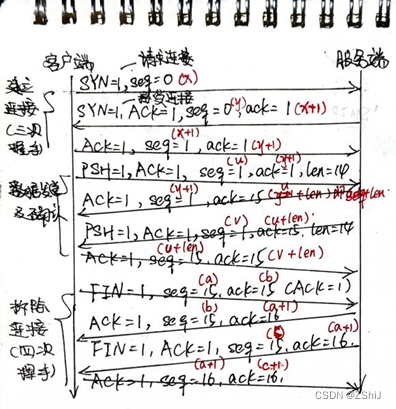 客户端 请求连接 服务端
SYN=1, seq=0 (x)
接受连接
SYN=1, ACK=1, seq=0 (y), ack=1 (x+1)
建立
连接
(三次
握手)
(x+1)
ACK=1, seq=1, ack=1 (y+1)
(u) (y+1)
PSH=1, ACK=1, seq=1, ack=1, len=14
数据发送
及确认
(y+1) u
ACK=1, seq=1, ack=15 +len
(v) (u+len)
PSH=1, ACK=1, seq=1, ack=15, len=14
(u+len)
ACK=1, seq=15, ack=15 (v+len)
(a) (b)
FIN=1, seq=15, ack=15 (ACK=1)
拆除
连接
(四次
挥手)
(b) (a+1)
ACK=1, seq=15, ack=16
(a+1)
FIN=1, ACK=1, seq=15, ack=16.
(a+1) (c+1)
ACK=1, seq=16, ack=16.
CSDN @ZShiJ